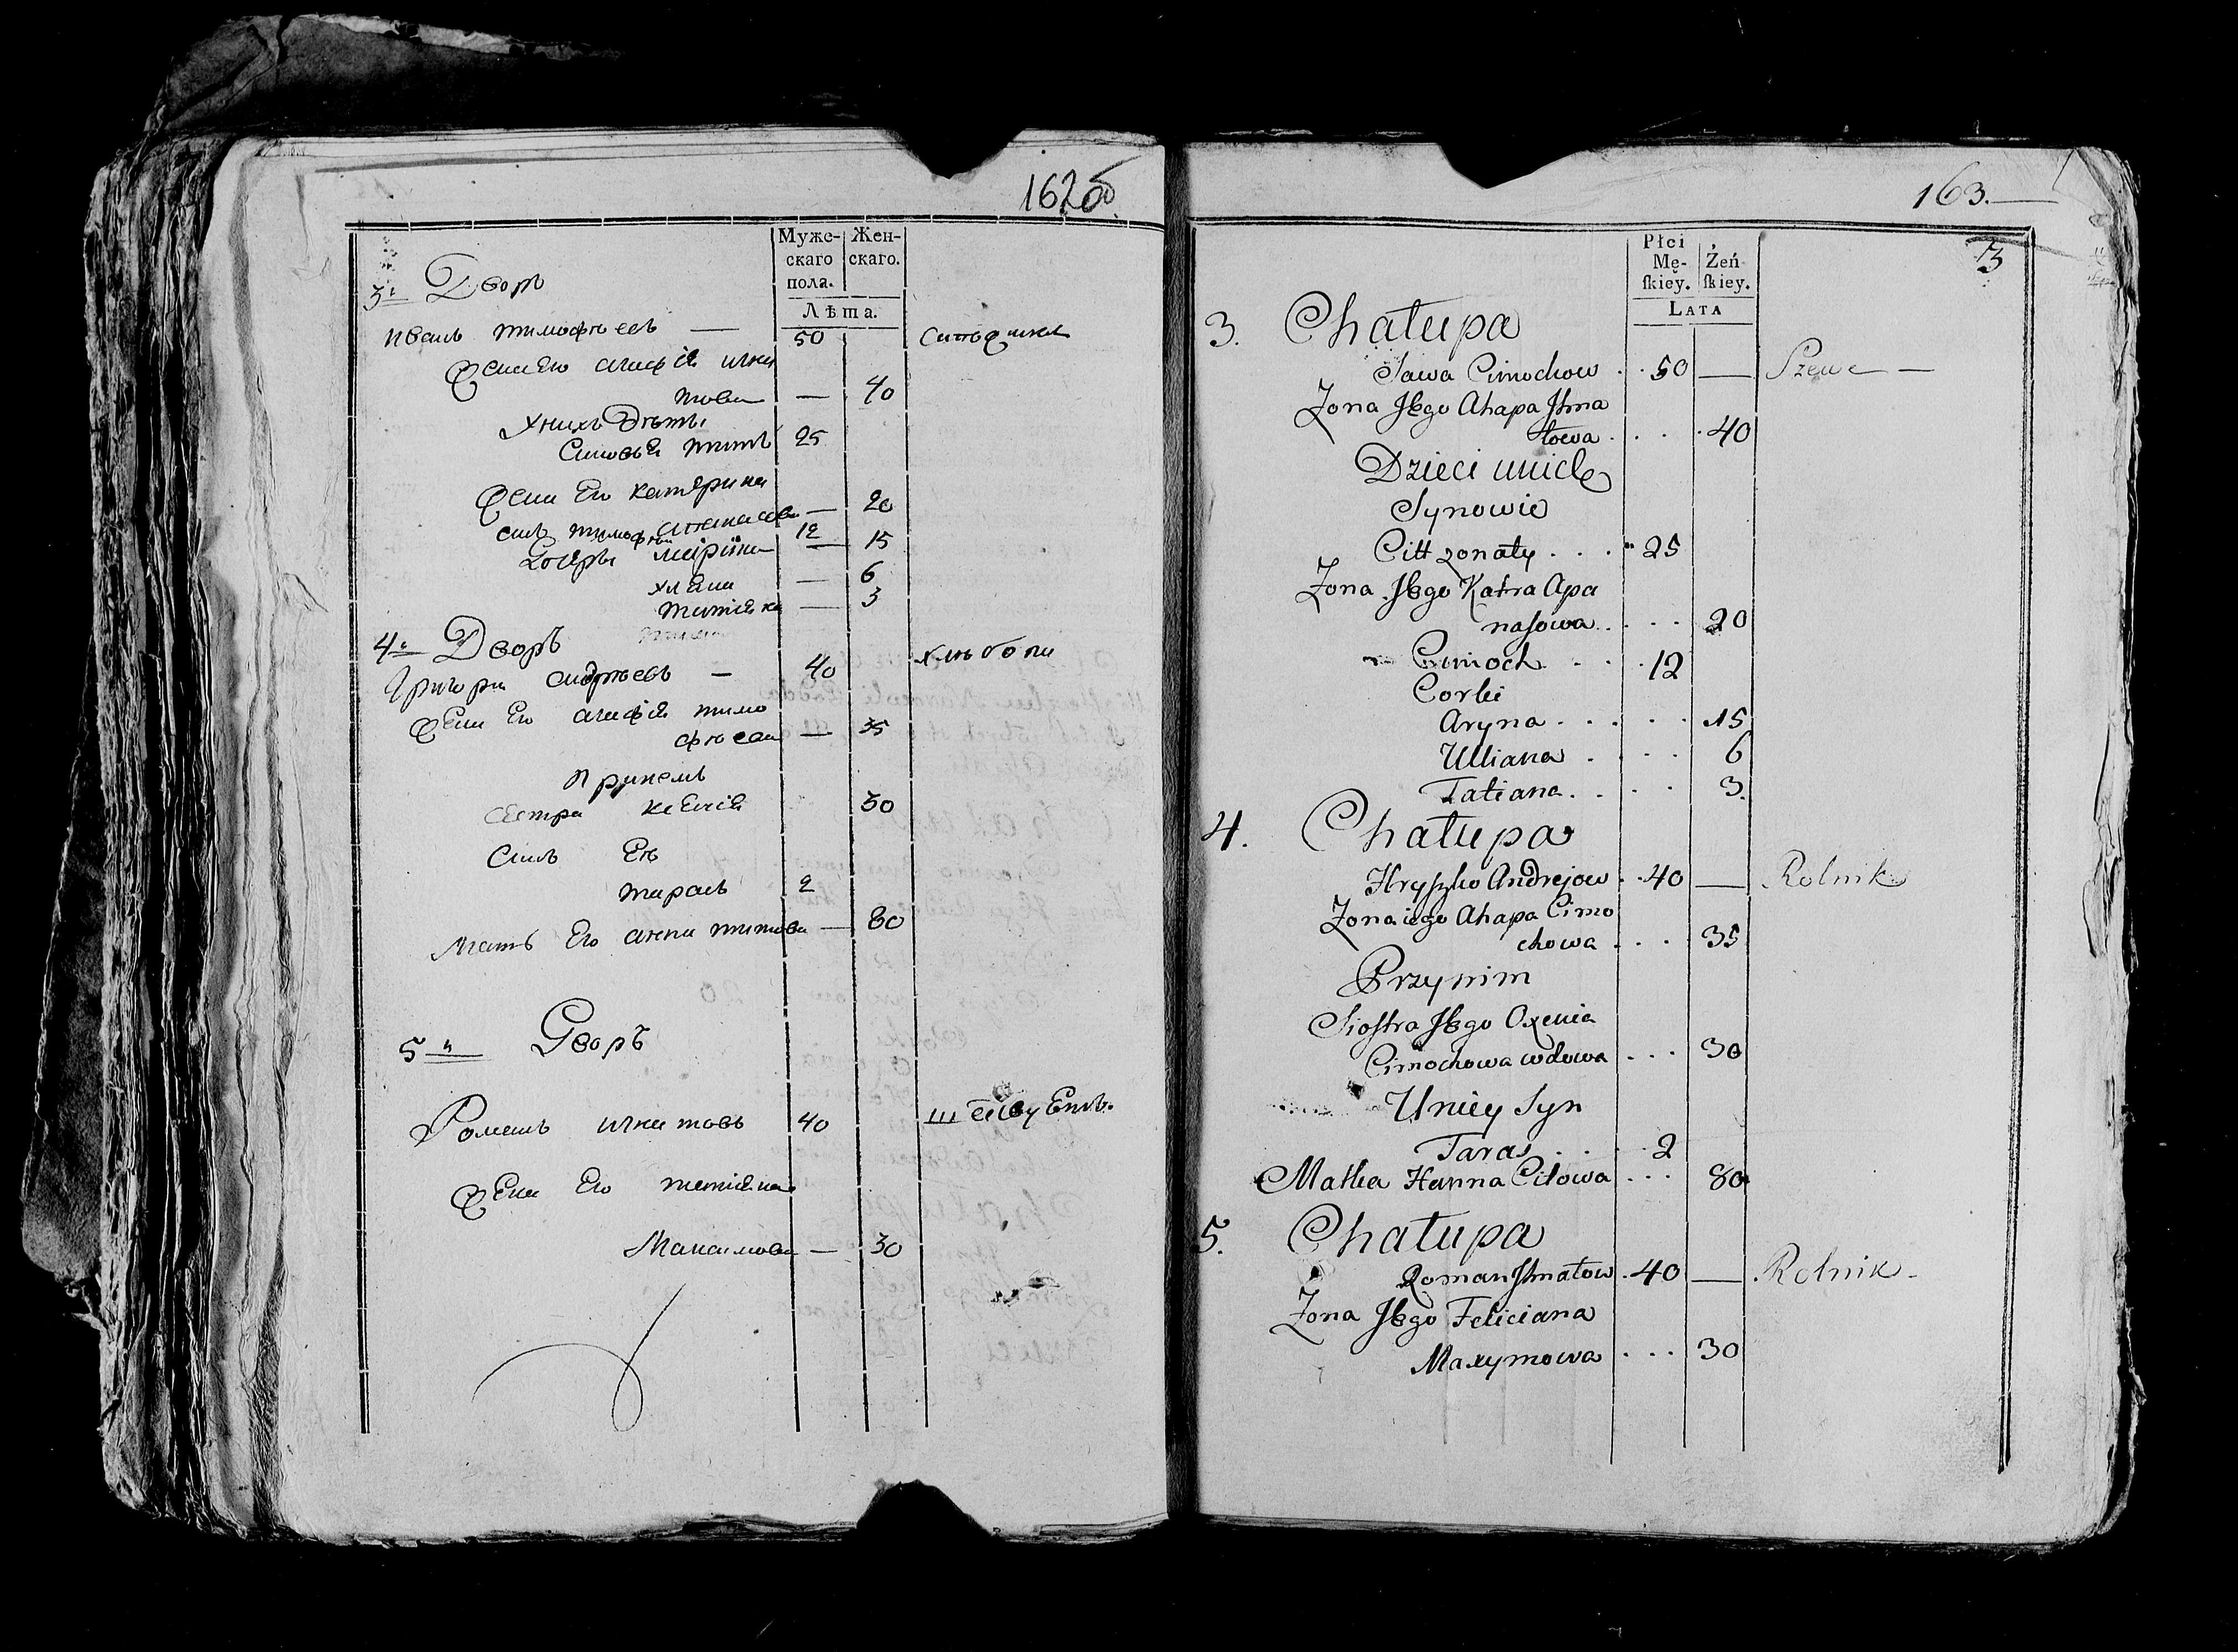 162об
Муже-
скаго
пола.
Жен-
скаго.
Лѣта.
3й Дворъ
иванъ тимофѣевъ — 50
Жена Его агафія игна
това — 40
У нихъ Дѣти
Синовья титъ 25
Жена Его катерина
афанасова — 20
синъ тимофѣй 12
дочери марина — 15
уляна — 6
татіяна — 3
4й Дворъ
григори андрѣевъ — 40 хлѣбопа
Жена Его агафія тимо
фѣева — 35
При немъ
сестра ксенія 30
Синъ Ея
тарасъ 2
Мать Его анна титова — 80
5й Дворъ
Романъ игнатовъ 40
Жена Его татіяна
Максимова — 30
163.
Płci
Mę-
skiey.
Żeń
skiey.
LATA
3
3. Chałupa
Sawa Cimochow . . 50 — Szewc —
Zona Jego Ahapa Jhna
towa . . . . 40
Dzieci unich
Synowie
Citt zonaty . . . 25
Zona Jego Katra Apa
nasowa . . . . 20
Cimoch . . . 12
Corki
Aryna . . . . . 15
Ulliana . . . 6
Tatiana . . . . 3.
4. Chałupa
Hryszko Andrejow . . 40 — Rolnik
Zona iego Ahapa Cimo
chowa . . . . 35
Przy nim
Siostra Jego Oxenia
Cimochowa wdowa . . . 30
Uniey Syn
Taras . . . . 2
Matka Hanna Citowa . . . 80
5. Chałupa
Roman Jhnatow . 40 — Rolnik —
Zona Jego Feliciana
Maxymowa . . . 30